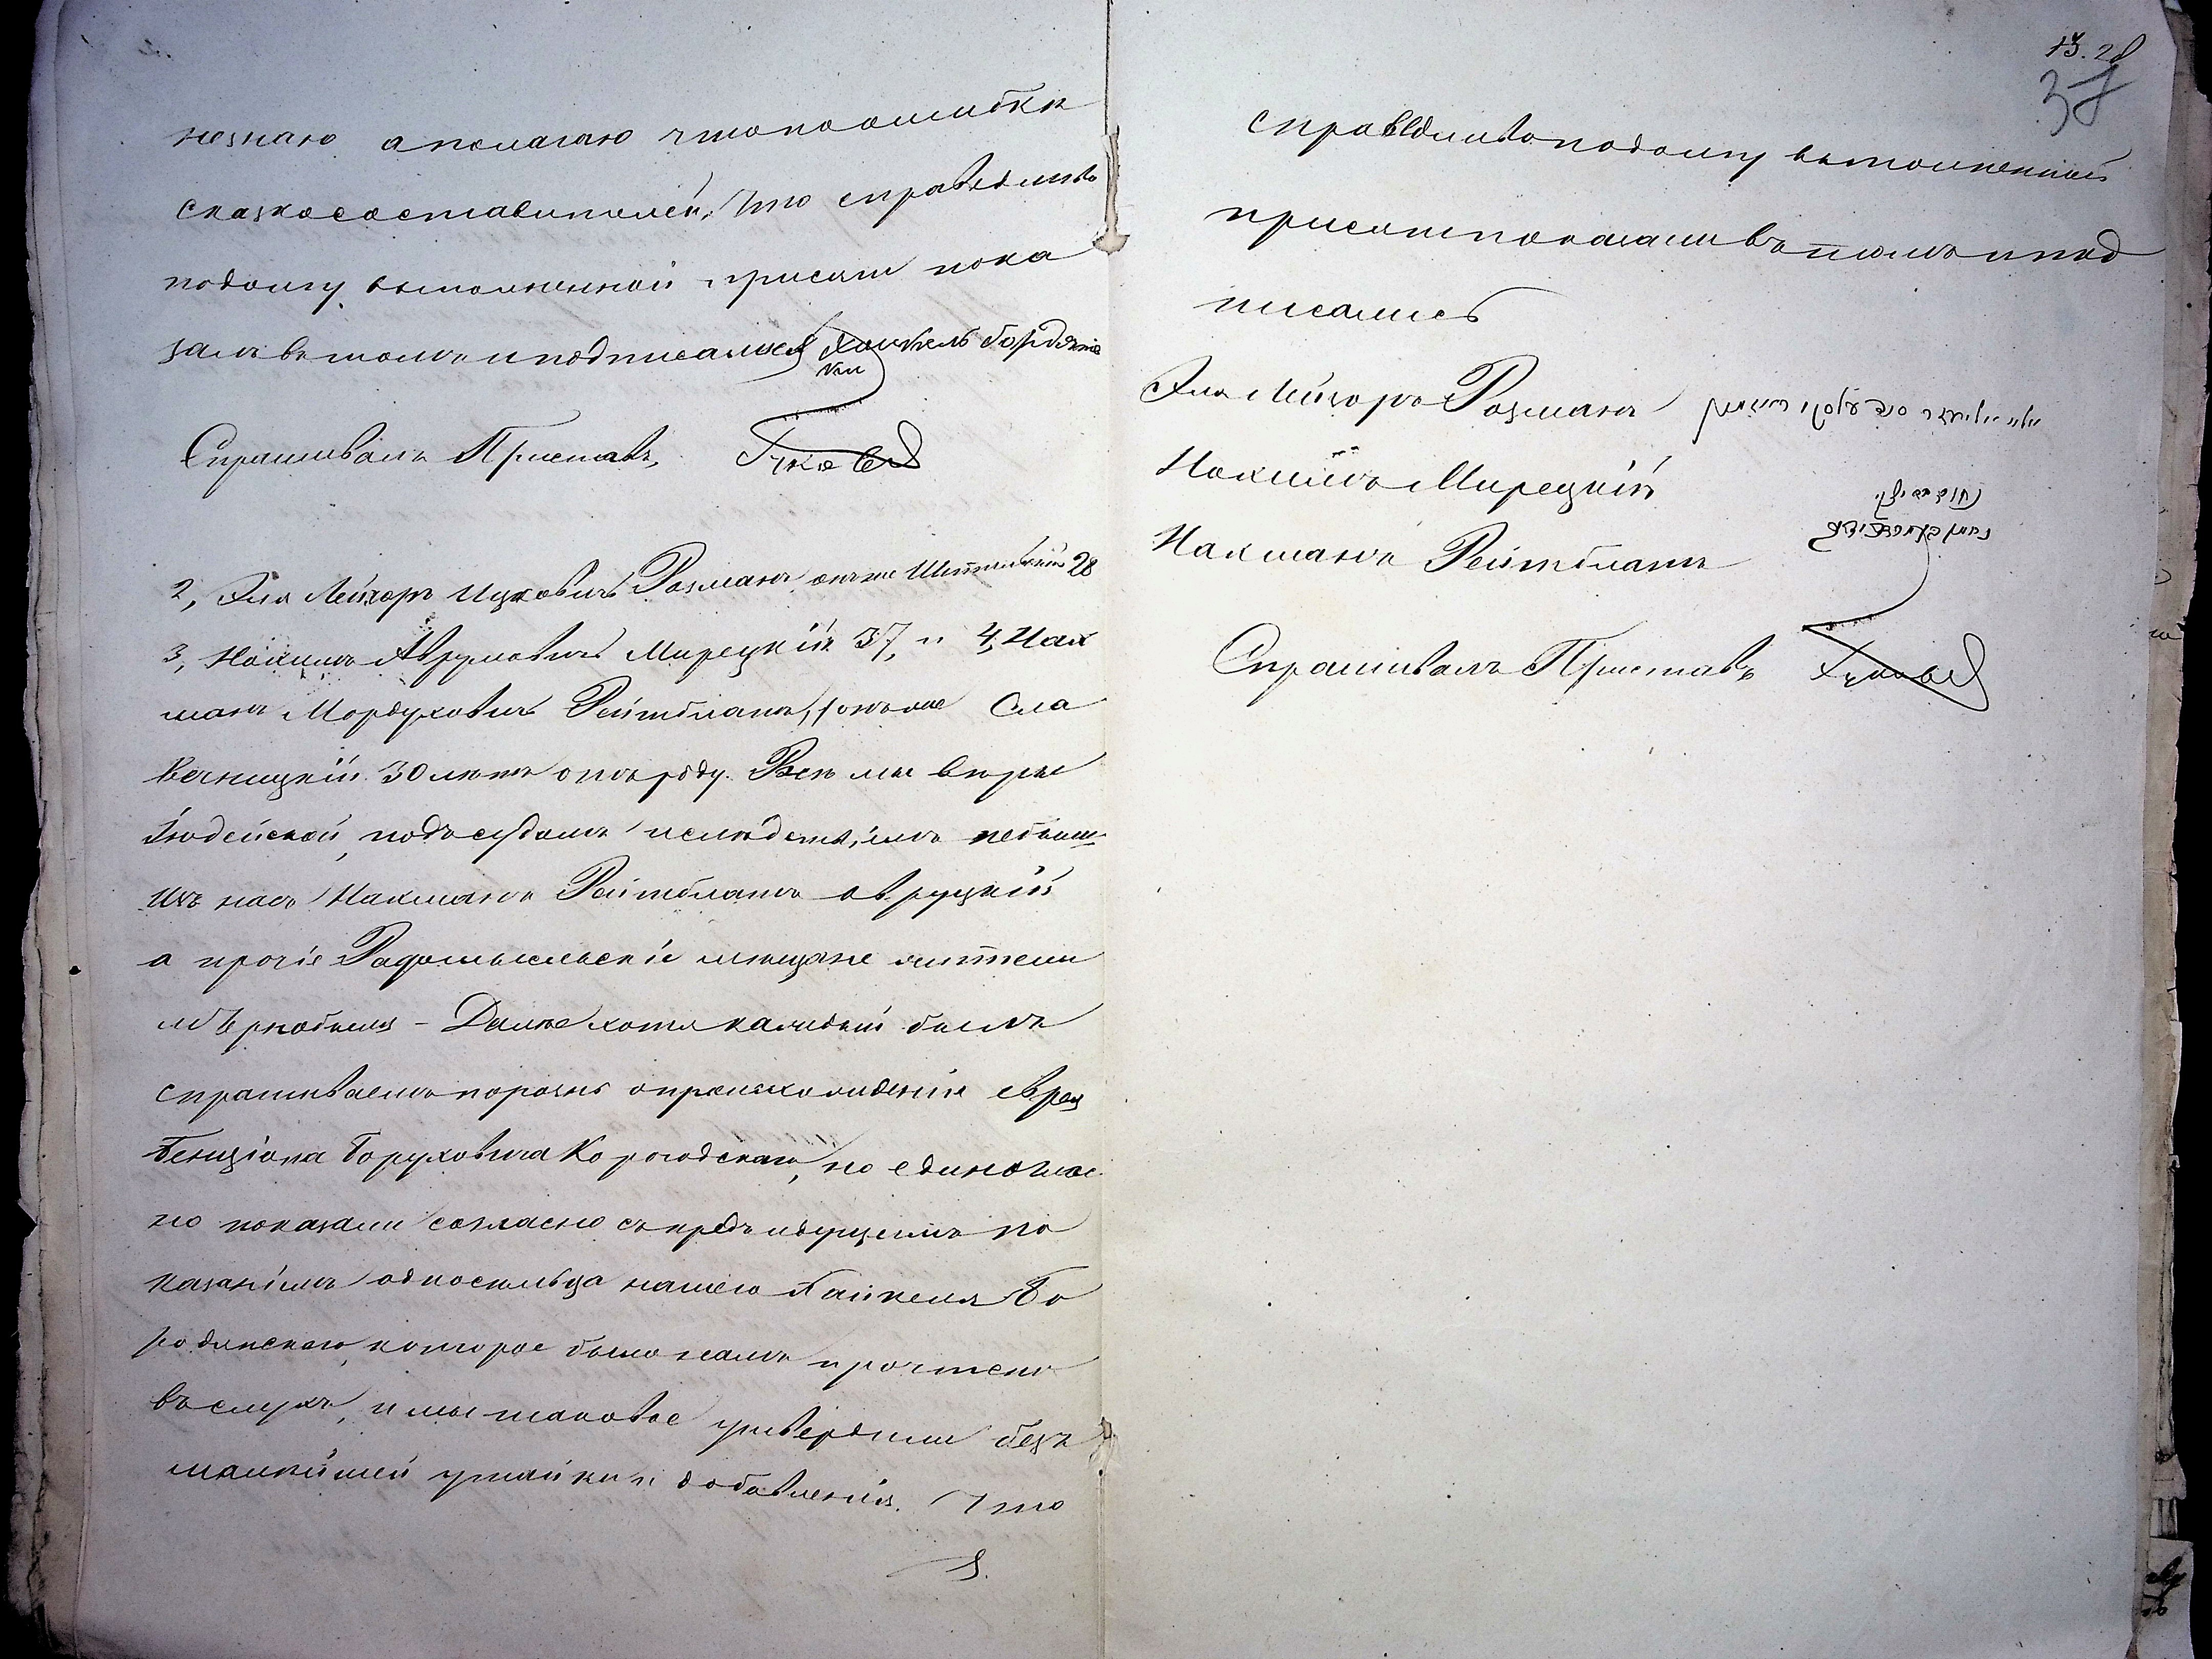 незнаю а пологаю что по ошибки
сказкосоставителей. Что справедливо
по долгу выполненной присяги пока
залъ въ томъ и подписался Хайкель Бородянс
кій
Спрашивалъ Приставъ
2, Эля Лейзоръ Ицковичъ Розманъ онъ же 28
3, Нохимъ Аврумовичъ Мирецкій 37, и 4, Нах
манъ Мордуховичъ Рейтблатъ, онъ же Сла
вечницкій 30 лѣтъ отъ роду. Всѣ мы вѣры
Іюдейской, подъ судомъ и слѣдствіемъ небыли
изъ насъ Нахманъ Рейтблатъ овруцкій
а прочіе Радомысльскіе мѣщане жители
м Чернобыля – Далѣе хотя каждый былъ
спрашиваемъ порознь о происхожденіи еврея
Бенціона Боруховича Корогодскаго, но единоглас
но показали согласно съ предъидущимъ по
казаніемъ односельца нашего Хайкеля Бо
родянскаго, которое было намъ прочтено
въ слухъ, и мы таковое утвердили безъ
малѣйшей утайки и добавленія. Что
13. 28
37
справедливо по долгу выполненной
присяги показали въ томъ и под
писались
Эля Лейзоръ Розманъ
Нохимъ Мирецкій
Нахманъ Рейтблатъ
Спрашивалъ Приставъ